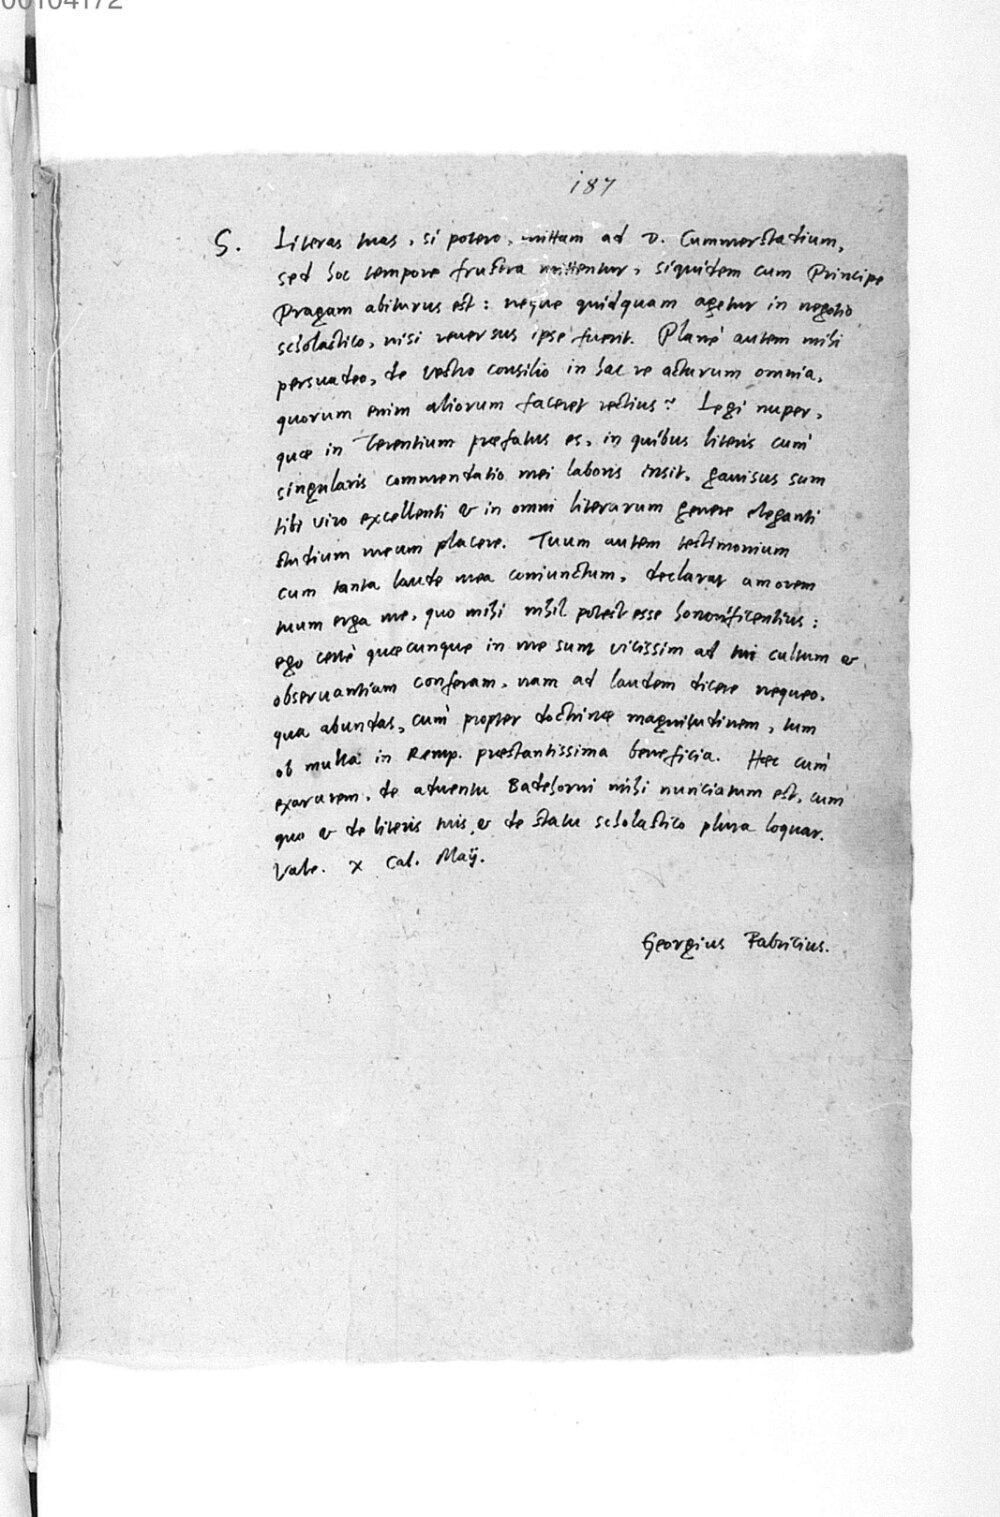 00104172
187
S. Literas tuas, si potero, mittam ad D. Cummerstadium,
sed hoc tempore frustra mittentur, siquidem cum Principe
Pragam abiturus est: neque quidquam agetur in negotio
scholastico, nisi reuersus ipse fuerit. Planè autem mihi
persuadeo, de vestro consilio in hac re acturum omnia,
quorum enim aliorum faceret rectius? Legi nuper,
quæ in Terentium præfatus es, in quibus literis cum
singularis commendatio mei laboris insit, gauisus sum
tibi viro excellenti & in omni literarum genere eleganti
studium meum placere. Tuum autem testimonium
cum tanta laude mea coniunctum, declarat amorem
tuum erga me, quo mihi nihil potest esse honorificentius:
ego certè quæcunque in me sunt vicissim ad tui cultum &
obseruantiam conferam, nam ad laudem dicere nequeo,
qua abundas, cum propter doctrinæ magnitudinem, tum
ob multa in Remp. præstantissima beneficia. Hæc cum
exararem, de aduentu Badehorni mihi nunciatum est, cum
quo & de literis tuis & de statu scholastico plura loquar.
Vale. X Cal. Maij.
Georgius Fabricius.